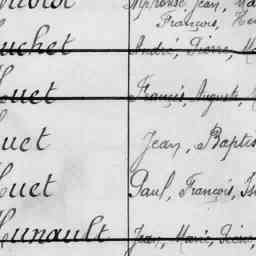 Alphonse, Jean, Ma
François, He
uchet André, Pierre, M
Huet Francis, Auguste, M
uet Jean, Baptis
Huet Paul, François, Is
Hunault Jean, Marie, Pierre,